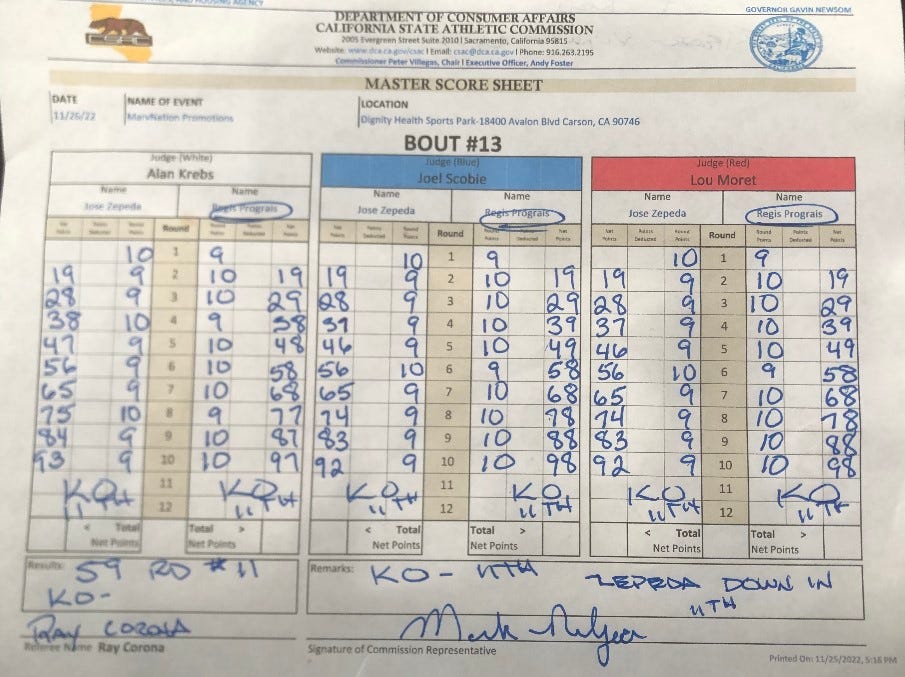 GOVERNOR GAVIN NEWSOM
DEPARTMENT OF CONSUMER AFFAIRS
CALIFORNIA STATE ATHLETIC COMMISSION
2005 Evergreen Street Suite 2010 | Sacramento, California 95815
Website: www.dca.ca.gov/csac | Email: csac@dca.ca.gov | Phone: 916.263.2195
Commissioner Peter Villegas, Chair | Executive Officer, Andy Foster
MASTER SCORE SHEET
DATE NAME OF EVENT LOCATION
11/26/22 MarvNation Promotions Dignity Health Sports Park-18400 Avalon Blvd Carson, CA 90746
BOUT #13
Judge (White) Judge (Blue) Judge (Red)
Alan Krebs Joel Scobie Lou Moret
Name Name Name Name Name Name
Jose Zepeda Regis Prograis Jose Zepeda Regis Prograis Jose Zepeda Regis Prograis
Net Points Points Deducted Round Points Round Round Points Points Deducted Net Points Net Points Points Deducted Round Points Round Round Points Points Deducted Net Points Net Points Points Deducted Round Points Round Round Points Points Deducted Net Points
10 1 9 10 1 9 10 1 9
19 9 2 10 19 19 9 2 10 19 19 9 2 10 19
28 9 3 10 29 28 9 3 10 29 28 9 3 10 29
38 10 4 9 38 37 9 4 10 39 37 9 4 10 39
47 9 5 10 48 46 9 5 10 49 46 9 5 10 49
56 9 6 10 58 56 10 6 9 58 56 10 6 9 58
65 9 7 10 68 65 9 7 10 68 65 9 7 10 68
75 10 8 9 77 74 9 8 10 78 74 9 8 10 78
84 9 9 10 87 83 9 9 10 88 83 9 9 10 88
93 9 10 10 97 92 9 10 10 98 92 9 10 10 98
KO 11 KO KO 11 KO KO 11 KO
11TH 12 11TH 11TH 12 11TH 11TH 12 11TH
< Total Total > < Total Total > < Total Total >
Net Points Net Points Net Points Net Points Net Points Net Points
Results: 59 RD #11 Remarks: KO - 11TH ZEPEDA DOWN IN
KO- 11TH
RAY CORONA
Referee Name Ray Corona Signature of Commission Representative
Printed On: 11/25/2022, 5:16 PM